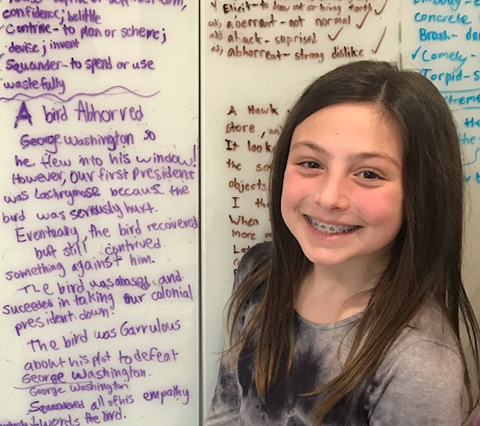 confidence; belittle
Contrive - to plan or scheme;
devise; invent
Squander - to spend or use
wastefully
A bird Abhorred
George Washington so
he flew into his window!
However, our first president
was lachrymose because the
bird was seriously hurt.
Eventually the bird recovered
but still contrived
something against him.
The bird was and
succeeded in taking our colonial
president down.
The bird was Garrulous
about his plot to defeat
George Washington.
George Washington
Squandered all of his empathy
towards the bird.
Elicit - to draw out or bring forth
adj aberrant - not normal
adj aback - suprise
adj abhorrent - strong dislike
A Hawk
store, an
It look
the so
objects
I th
When
more m
Late
concrete
Brash - de
Comely -
Torpid - s
xtreme
the
the